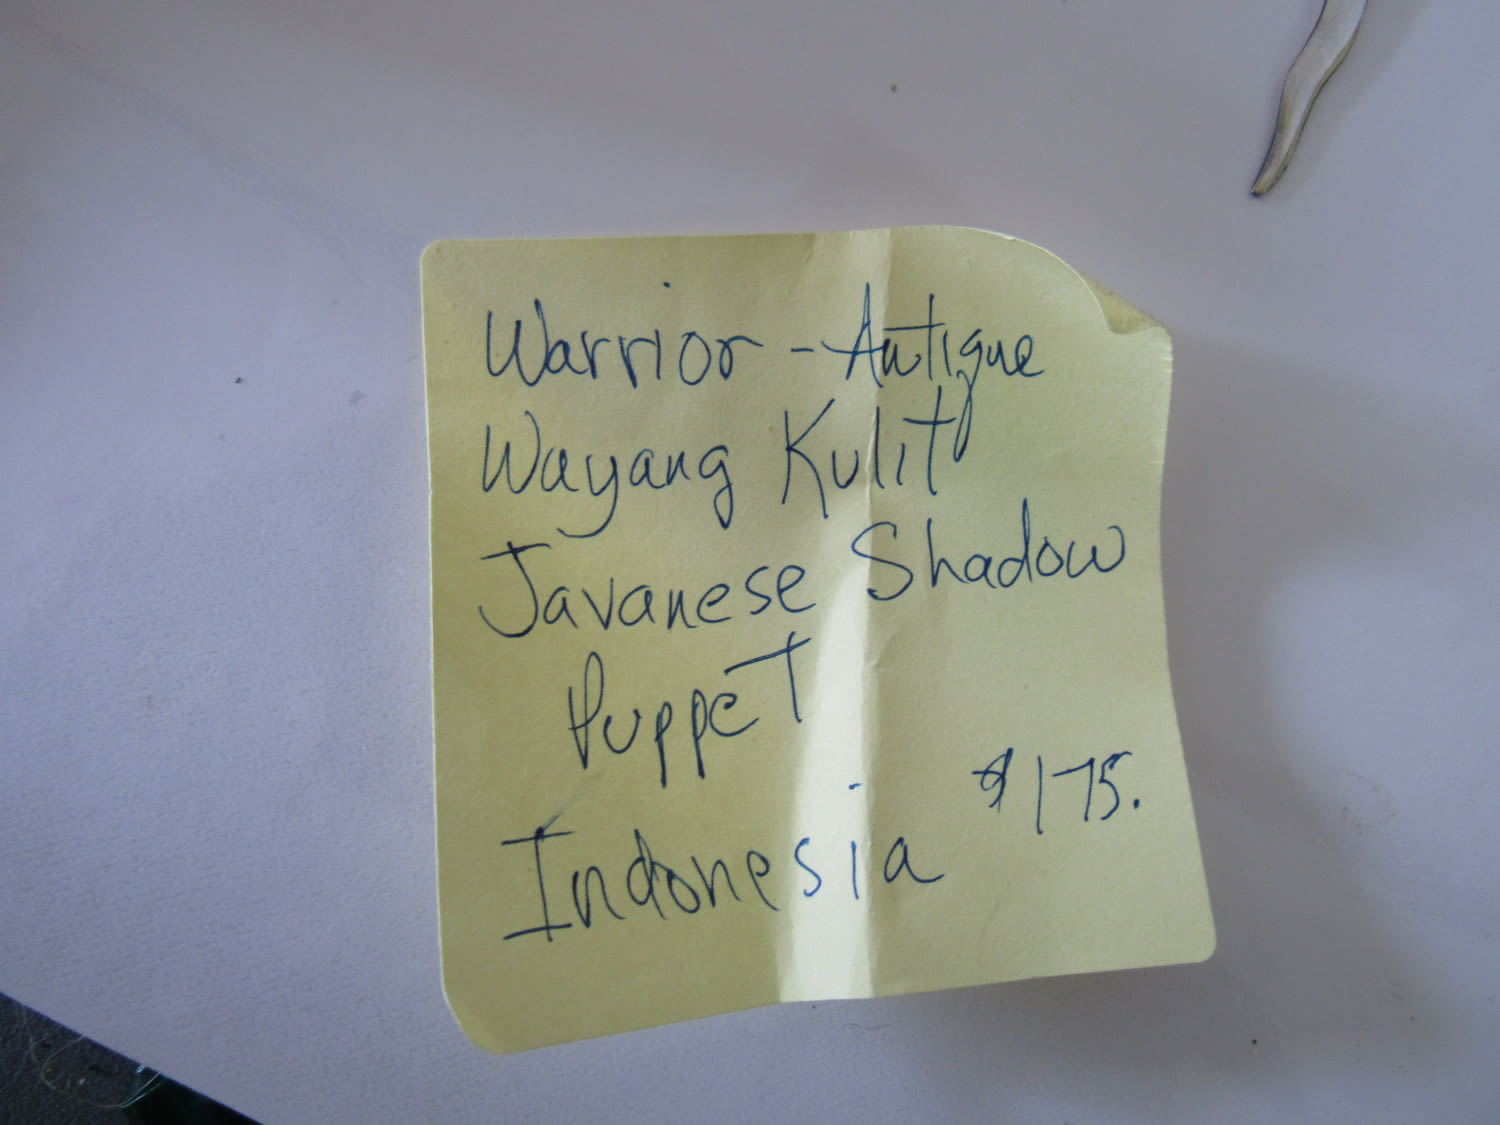 Warrior - Antique
Wayang Kulit
Javanese Shadow
Puppet
$175.
Indonesia